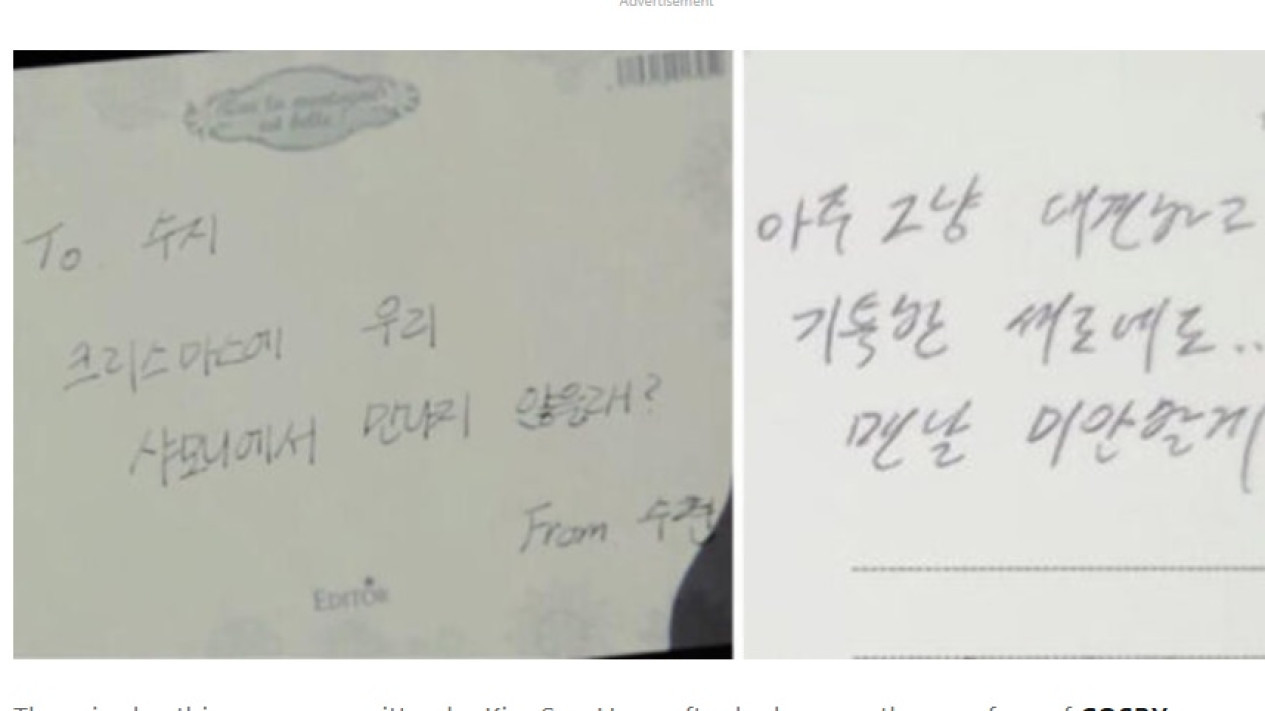 Advertisement
To 수지
크리스마스에 우리
샤모니에서 만나지 않을래?
From 수현
EDITOR
아주 그냥 대견하고
기특한 새로에도..
맨날 미안할게